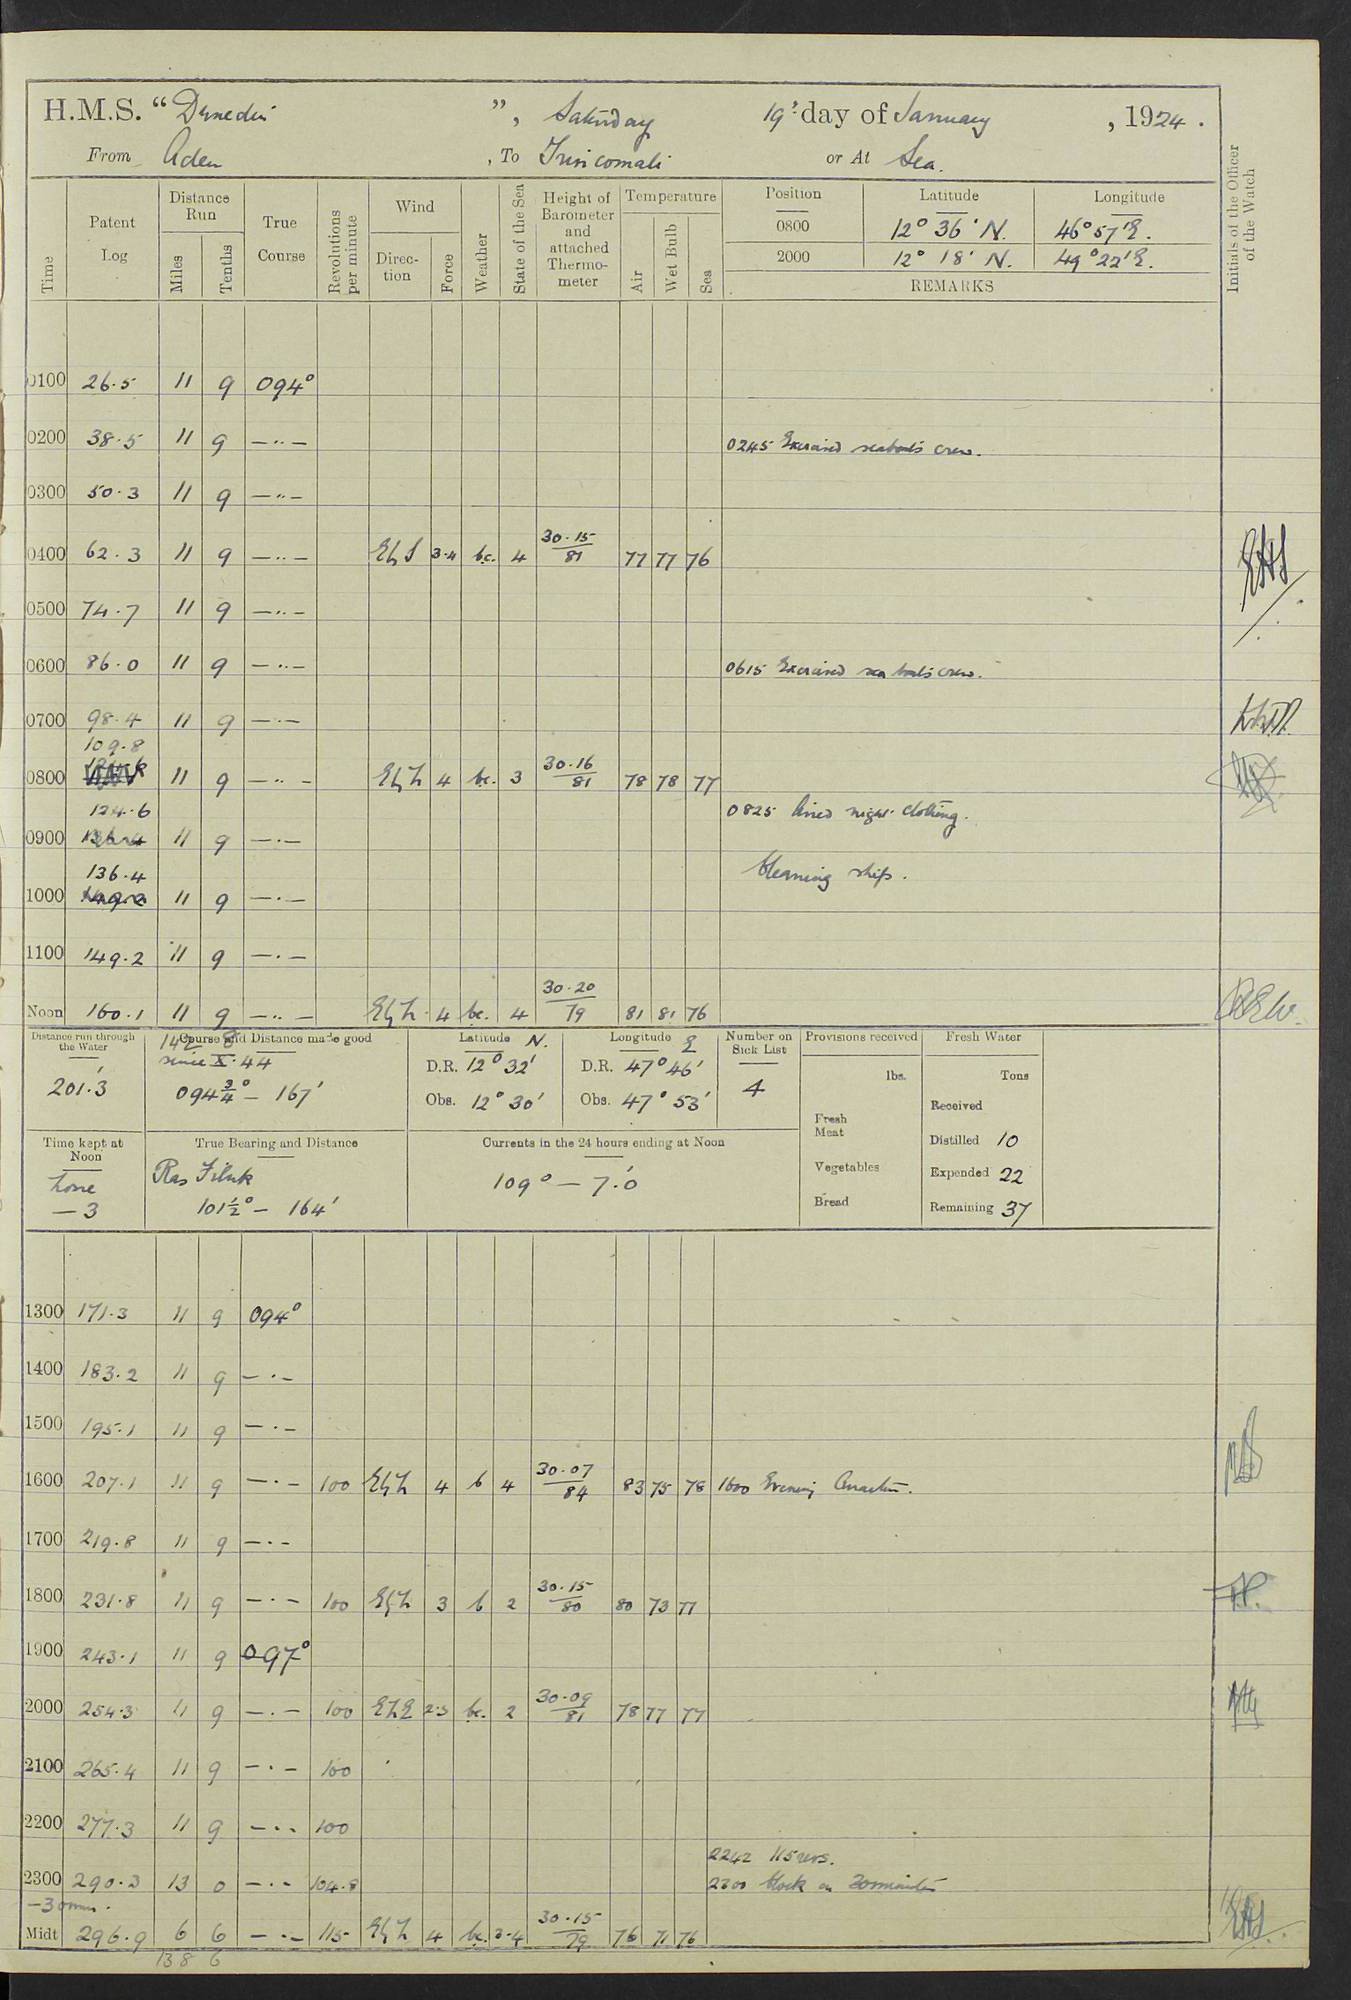 H.M.S. "Dunedin", Saturday 19th day of January, 1924.
From Aden, To Trincomali or At Sea.
Time Patent Log Distance Run Miles Tenths True Course Revolutions per minute Wind Direction Force Weather State of the Sea Height of Barometer and attached Thermometer Temperature Air Wet Bulb Sea Position Latitude Longitude Initials of the Officer of the Watch
0800 12° 36' N. 46° 57' E.
2000 12° 18' N. 49° 22' E.
REMARKS
0100 26.5 11 9 094°
0200 38.5 11 9 —"—
0245 Exercised seaboat's crew.
0300 50.3 11 9 —"—
0400 62.3 11 9 —"— EbyS 3-4 bc. 4 30.15/81 77 77 76
0500 74.7 11 9 —"—
0600 86.0 11 9 —"—
0615 Exercised sea boat's crew.
0700 98.4 11 9 —"—
109.8
0800 11 9 —"— EbyN 4 bc. 3 30.16/81 78 78 77
124.6
0825 Aired night clothing.
0900 136.4 11 9 —"—
136.4
Cleaning ship.
1000 149.2 11 9 —"—
1100 149.2 11 9 —"—
Noon 160.1 11 9 —"— EbyN. 4 bc. 4 30.20/79 81 81 76
142 8
Distance run through the Water
201.3'
Course and Distance made good
since X.44
094¾° — 167'
Latitude N.
D.R. 12° 32'
Obs. 12° 30'
Longitude E
D.R. 47° 46'
Obs. 47° 53'
Number on Sick List
4
Provisions received
lbs.
Fresh Meat
Vegetables
Bread
Fresh Water
Tons
Received
Distilled 10
Expended 22
Remaining 37
Time kept at Noon
Zone
—3
True Bearing and Distance
Ras Filuk
101½° — 164'
Currents in the 24 hours ending at Noon
109° — 7.0'
1300 171.3 11 9 094°
1400 183.2 11 9 —"—
1500 195.1 11 9 —"—
1600 207.1 11 9 —"— 100 EbyN 4 b 4 30.07/84 83 75 78 1600 Evening Quarters.
1700 219.8 11 9 —"—
1800 231.8 11 9 —"— 100 EbyN 3 b 2 30.15/80 80 73 77
1900 243.1 11 9 097°
2000 254.3 11 9 —"— 100 ENE 2-3 bc. 2 30.09/81 78 77 77
2100 265.4 11 9 —"— 100
2200 277.3 11 9 —"— 100
2242 115 revs.
2300 290.3 13 0 —"— 104.8
2300 Clock on 30 minutes
—30 min.
Midt 296.9 6 6 —"— 115 EbyN 4 bc. 3-4 30.15/79 76 71 76
138 6